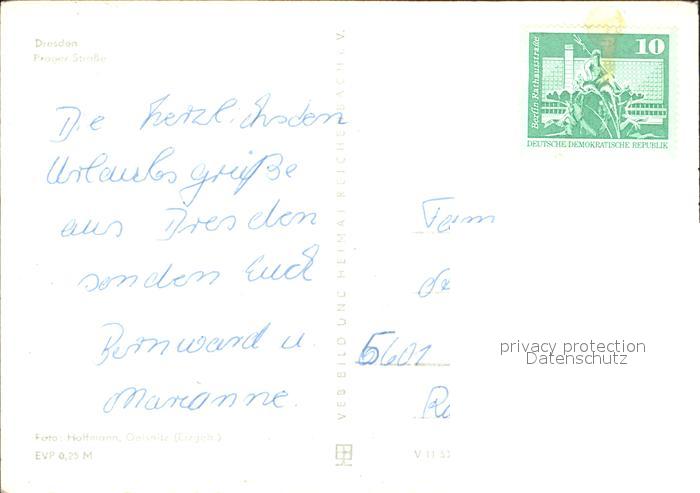 Dresden
Prager Straße
Die herzlichsden
Urlaubsgrüße
aus Dresden
senden Euch
Bernward u.
Marianne.
Foto: Hoffmann, Oelsnitz (Erzgeb.)
EVP 0,25 M
VEB BILD UND HEIMAT REICHENBACH i. V.
V 11 5
Berlin, Rathausstraße
10
DEUTSCHE DEMOKRATISCHE REPUBLIK
Fam
5601
privacy protection
Datenschutz